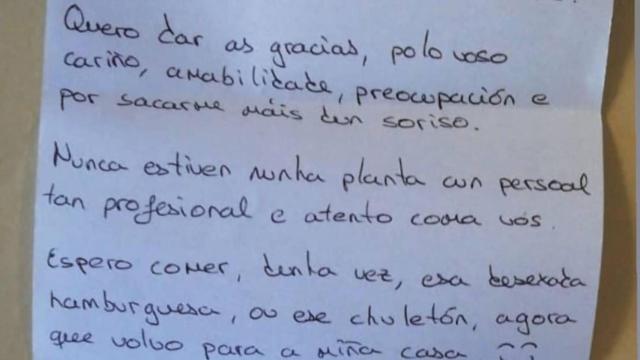 Quero dar as gracias, polo voso
cariño, amabilidade, preocupación e
por sacarme máis dun soriso.
Nunca estiven nunha planta cun persoal
tan profesional e atento coma vós.
Espero comer, dunha vez, esa desexada
hamburguesa, ou ese chuletón, agora
que volvo para a miña casa